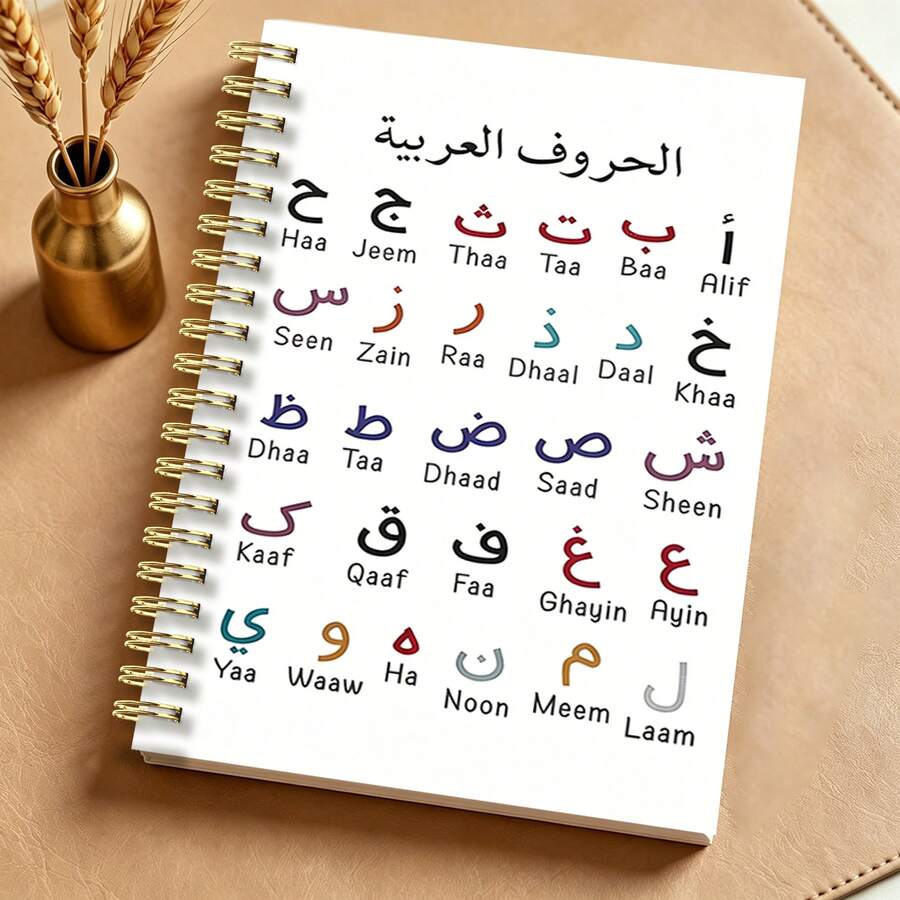 الحروف العربية
أ ب ت ث ج ح
Alif Baa Taa Thaa Jeem Haa
خ د ذ ر ز س
Khaa Daal Dhaal Raa Zain Seen
ش ص ض ط ظ
Sheen Saad Dhaad Taa Dhaa
ع غ ف ق ک
Ayin Ghayin Faa Qaaf Kaaf
ل م ن ه و ي
Laam Meem Noon Ha Waaw Yaa